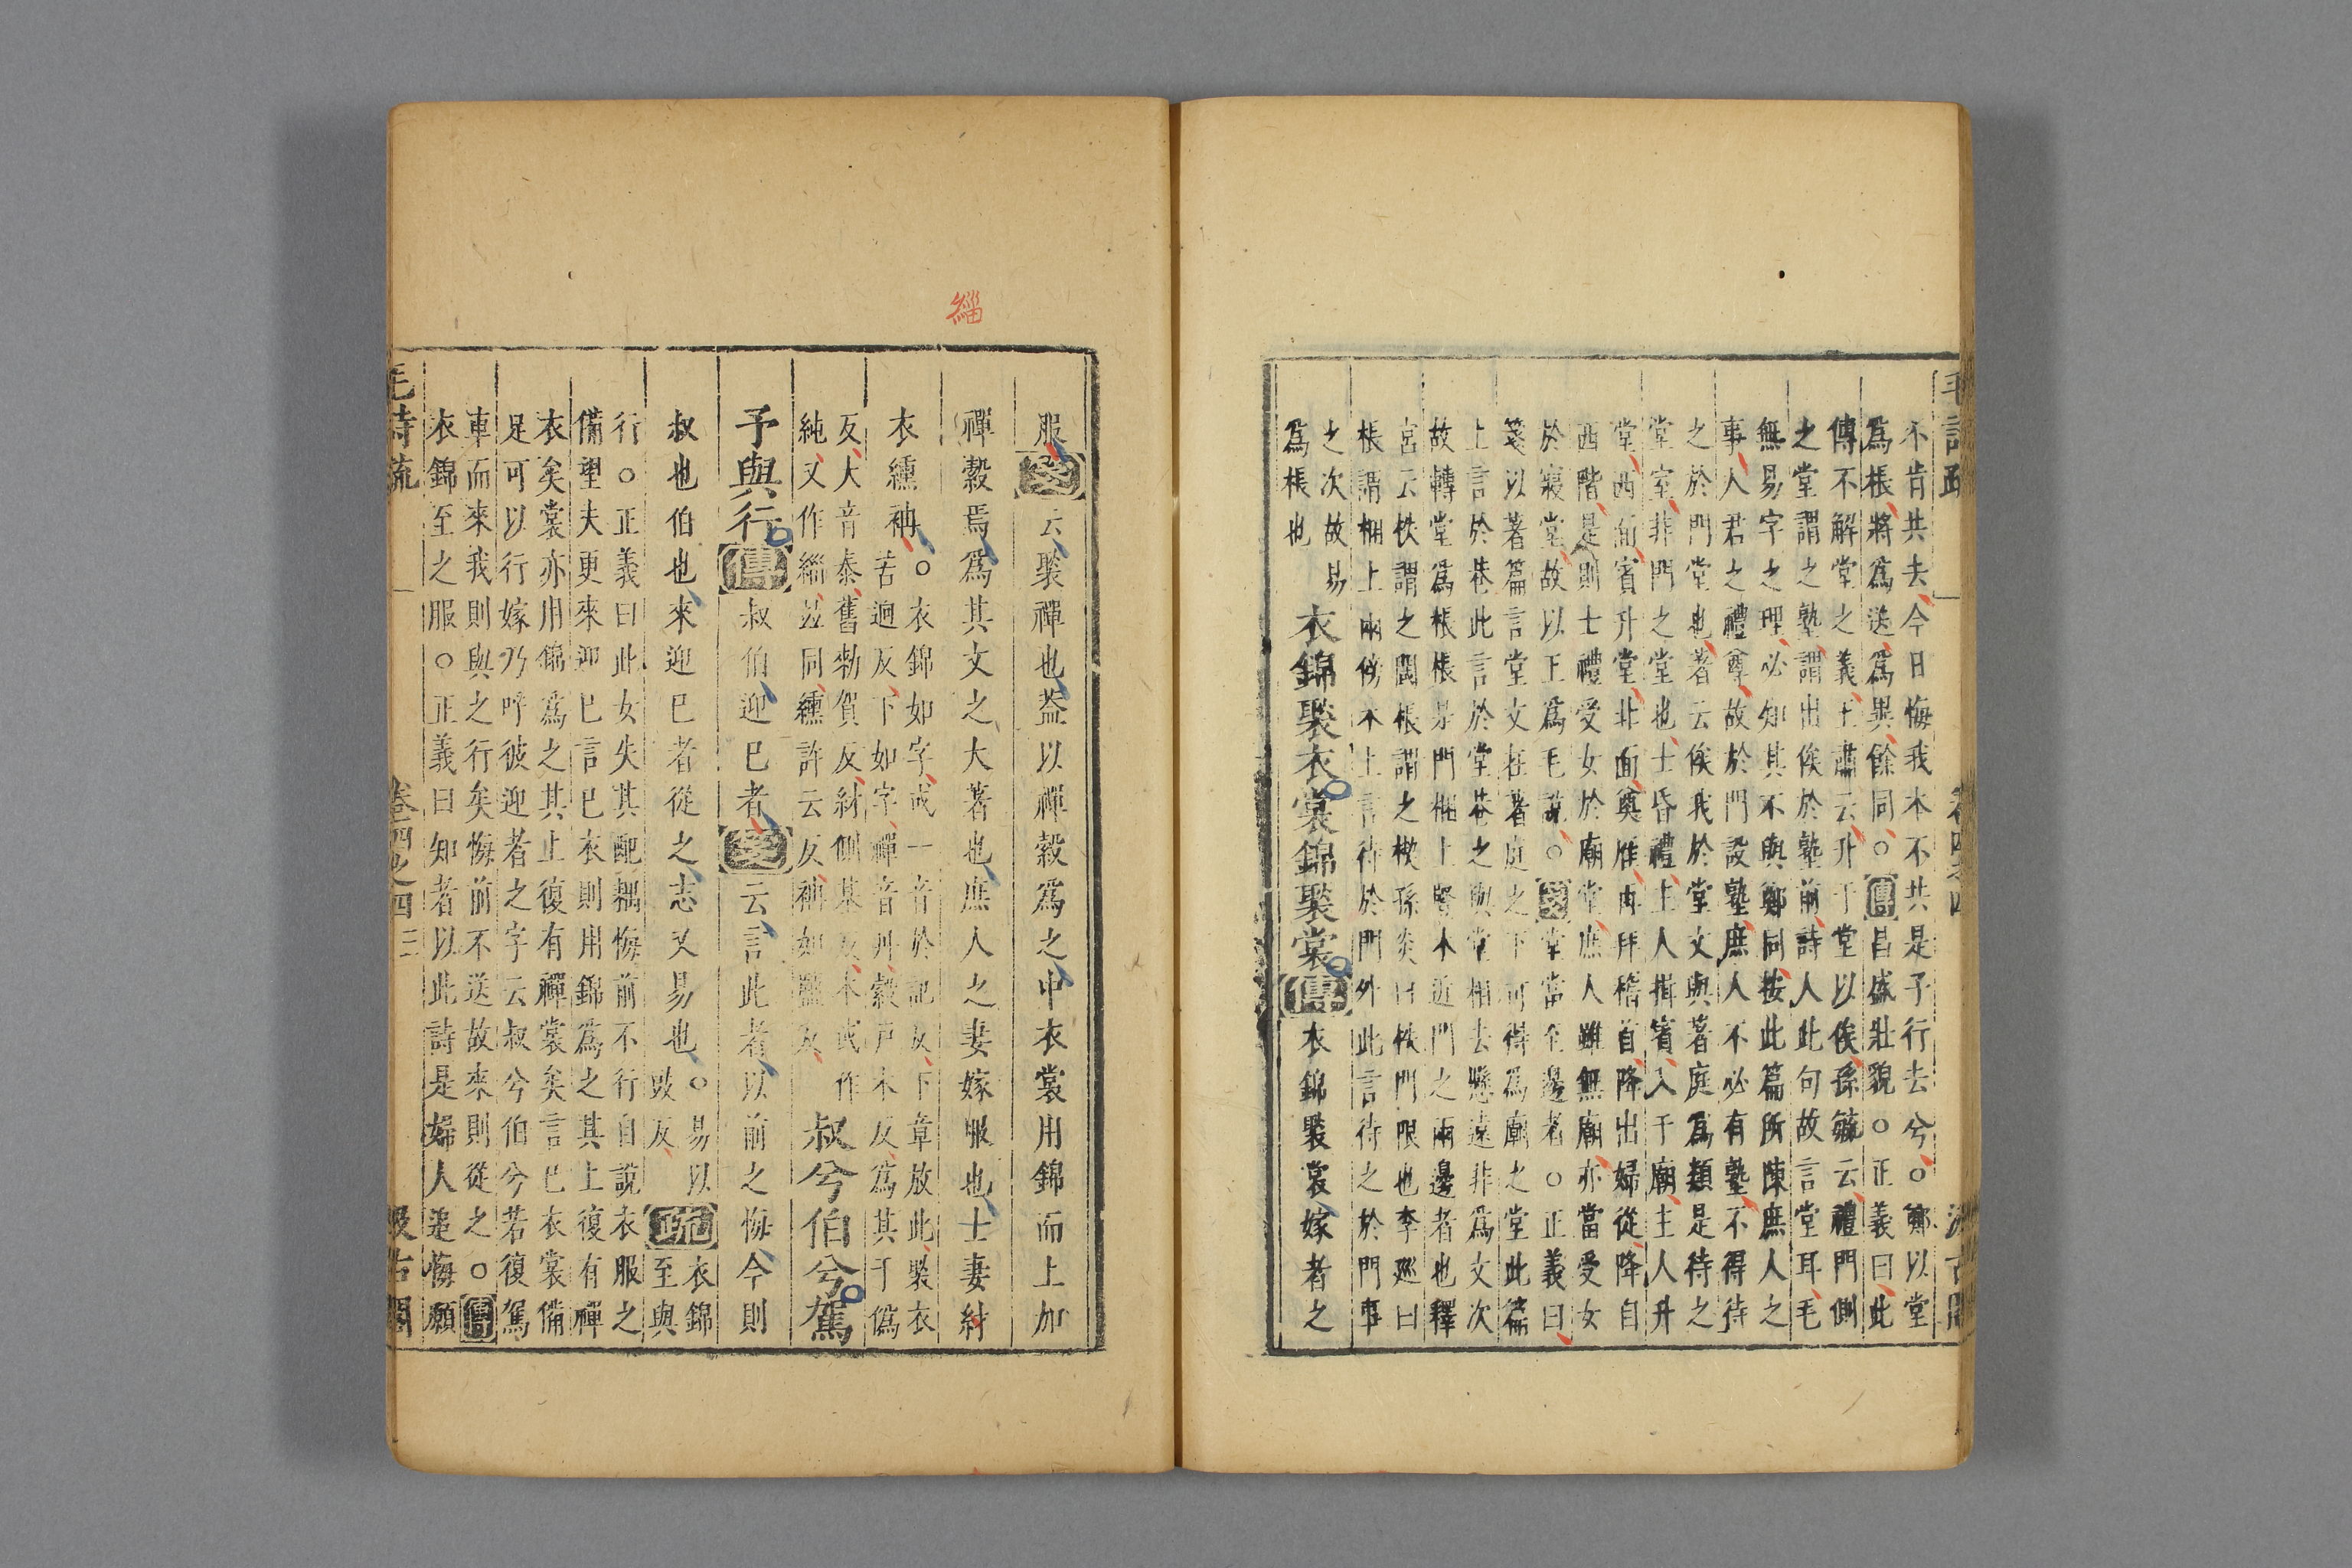 毛詩疏
卷四之四
汲古閣
不肯共去今日悔我本不共是子行去兮○鄭以堂
爲棖將爲送爲異餘同○傳昌盛壯貌○正義曰此
傳不解堂之義王肅云升于堂以俟孫毓云禮門側
之堂謂之塾謂出俟於塾前詩人此句故言堂耳毛
無易字之理必知其不與鄭同按此篇所陳庶人之
事人君之禮尊故於門設塾庶人不必有塾不得待
之於門堂也著云俟我於堂文與著庭爲類是待之
堂室非門之堂也士昏禮主人揖賓入于廟主人升
堂西面賓升堂北面奠鴈再拜稽首降出婦從降自
西階是則士禮受女於廟堂庶人雖無廟亦當受女
於寢堂故以王爲毛說○箋堂當至邊者○正義曰
箋以著篇言堂文在著庭之下可得爲廟之堂此篇
上言於巷此言於堂巷之與堂相去懸遠非爲文次
故轉堂爲棖棖是門梱上豎木近門之兩邊者也釋
宮云柣謂之閾棖謂之楔孫炎曰柣門限也李廵曰
棖謂梱上兩傍木上言待於門外此言待之於門事
之次故易
爲棖也
衣錦褧衣裳錦褧裳傳衣錦褧裳嫁者之
服箋云褧襌也葢以襌縠爲之中衣裳用錦而上加
襌縠焉爲其文之大著也庶人之妻嫁服也士妻紂
衣纁袡
○衣錦如字或一音於記反下章放此褧衣
苦迥反下如字襌音丹縠戶木反爲其于僞
反大音泰舊勑賀反紂側基反本或作
純又作緇竝同纁許云反袡如鹽反
叔兮伯兮駕
予與行傳叔伯迎已者箋云言此者以前之悔今則
叔也伯也來迎已者從之志又易也
○易以
豉反
疏
衣錦
至與
行○正義曰此女失其配耦悔前不行自說衣服之
備望夫更來迎已言已衣則用錦爲之其上復有襌
衣矣裳亦用錦爲之其上復有襌裳矣言已衣裳備
足可以行嫁乃呼彼迎者之字云叔兮伯兮若復駕
車而來我則與之行矣悔前不送故來則從之○傳
衣錦至之服○正義曰知者以此詩是婦人追悔願
毛詩疏
卷四之四
三
汲古閣
緇